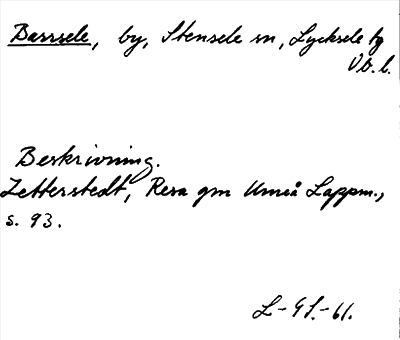 Barsele, by, Stensele sn, Lycksele tg
V.b. l.
Beskrivning.
Zetterstedt, Resa gm Umeå Lappm.,
s. 93.